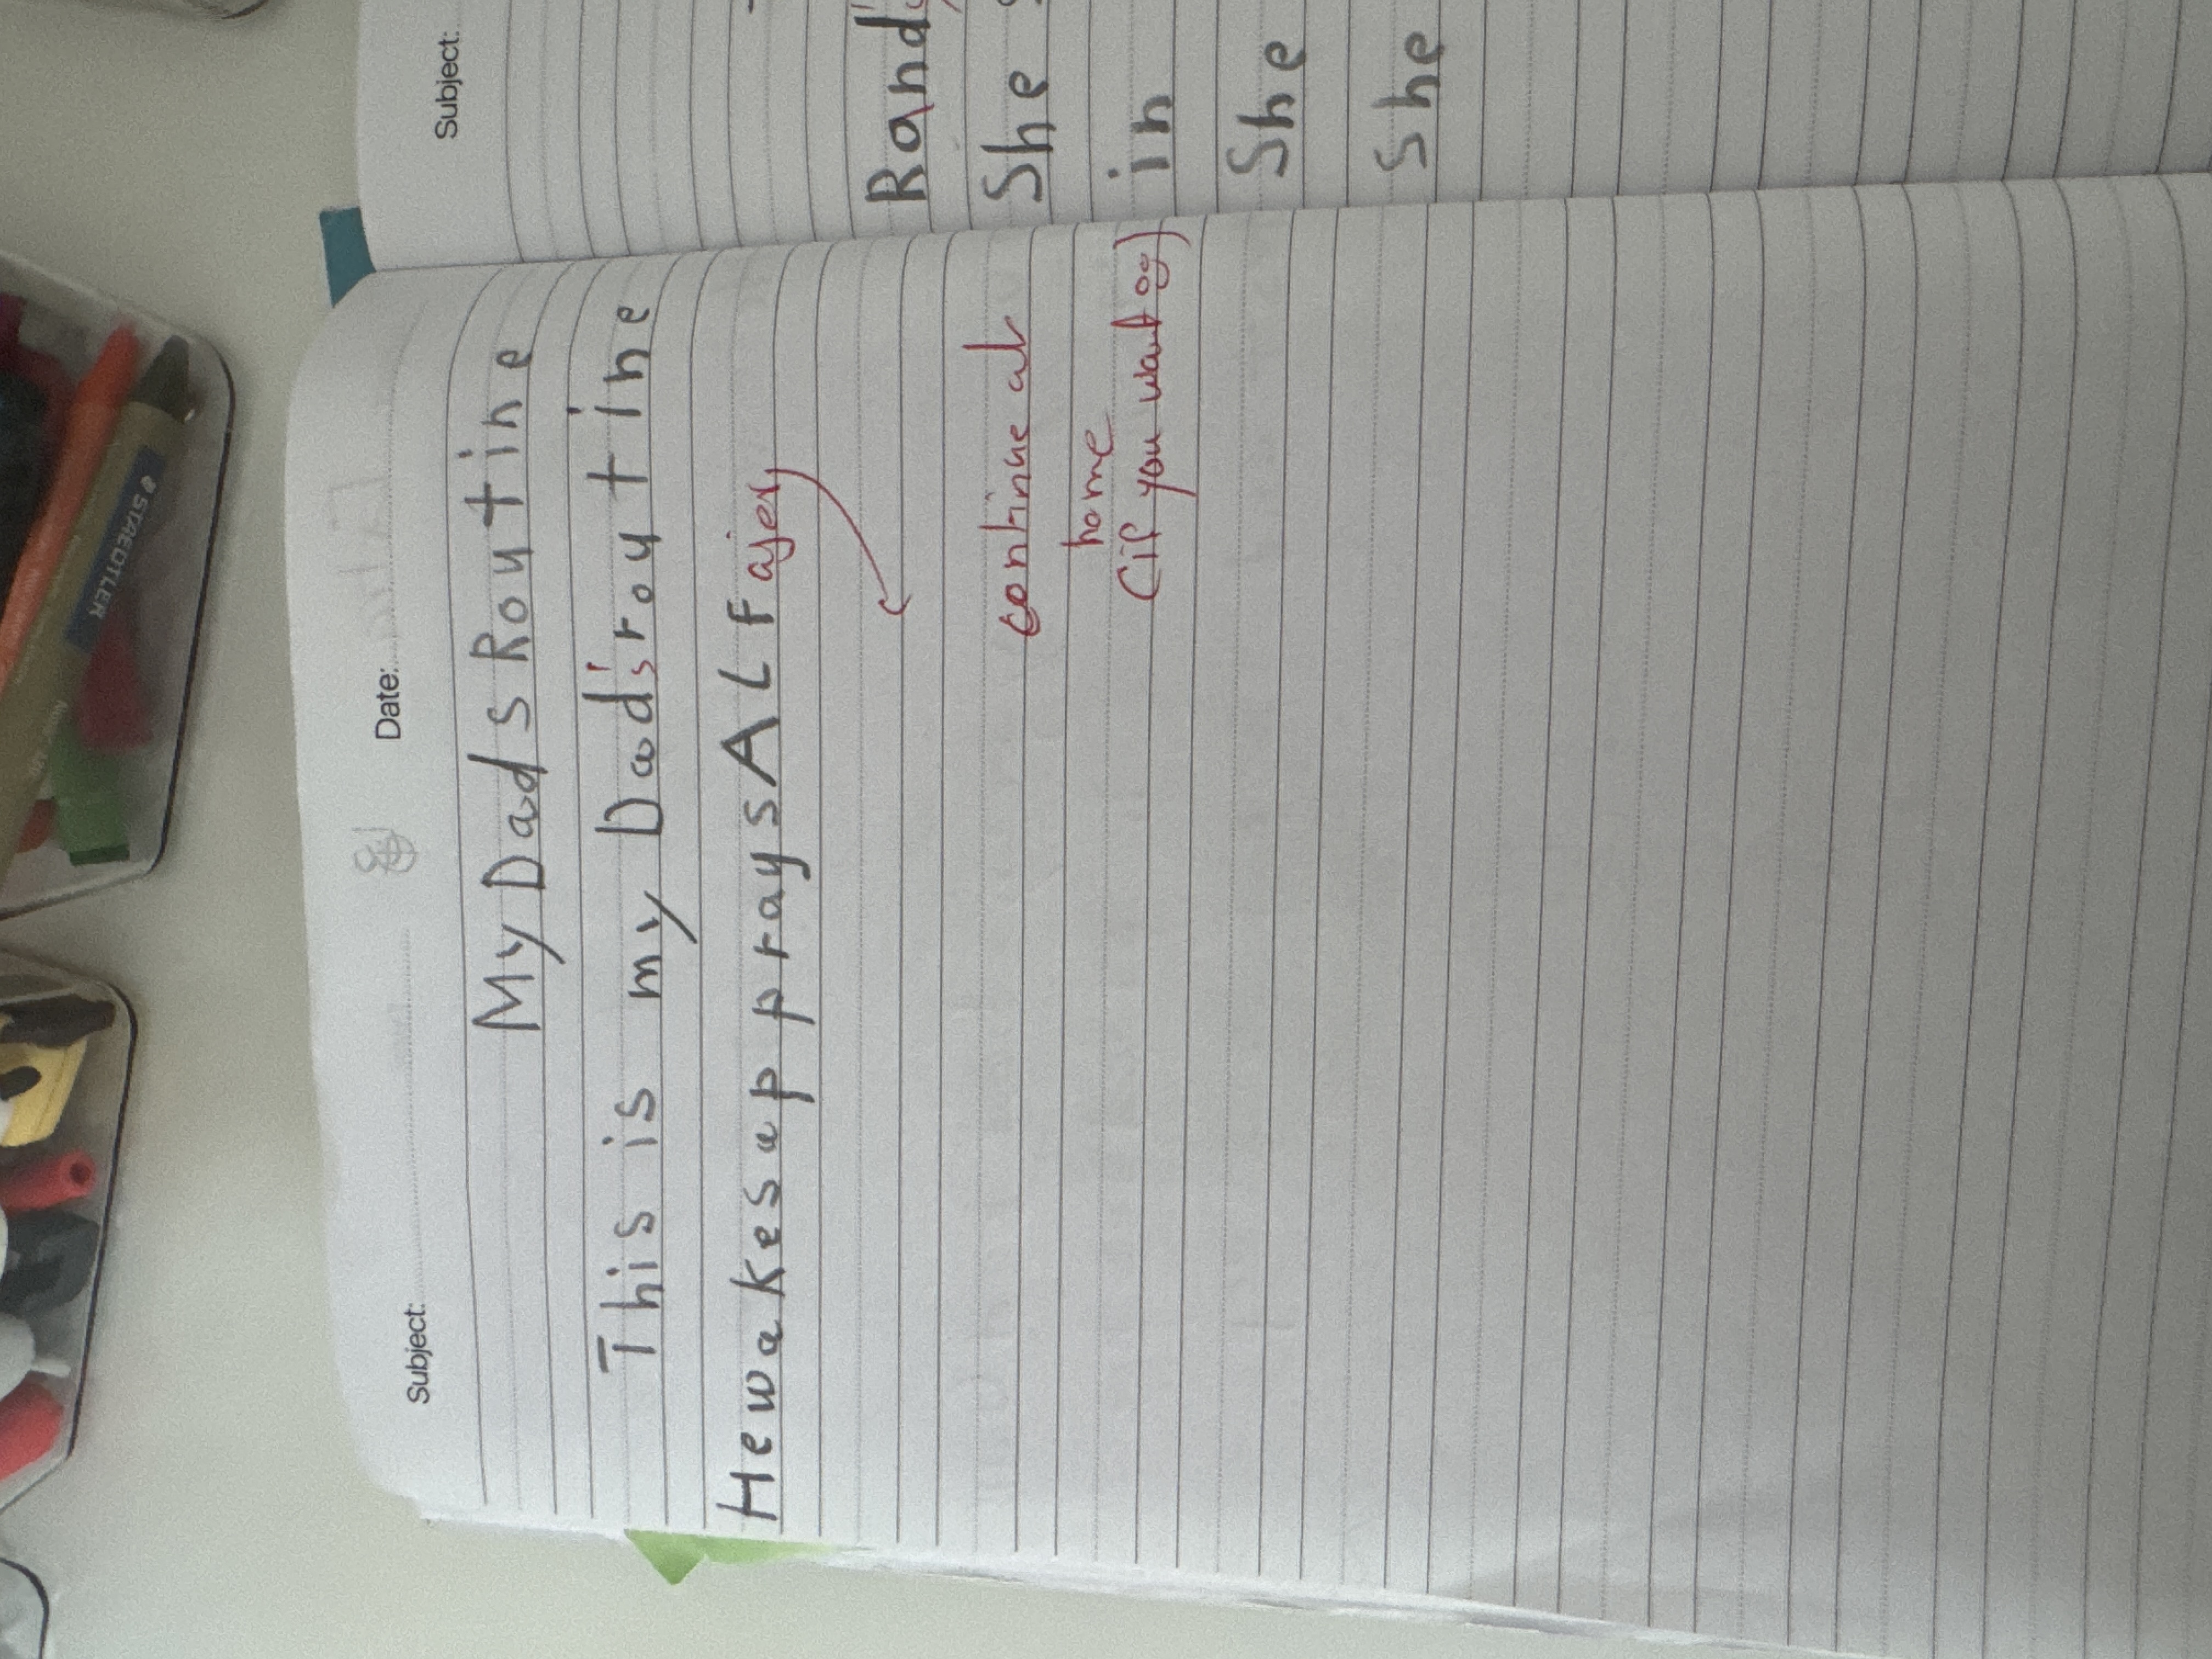 Subject: Date:
My Dads Routine
This is my Dad's routine
He wakes up prays ALFajer
continue at
home
(if you want
Subject:
Rand
She
in
She
She
STAEDTLER